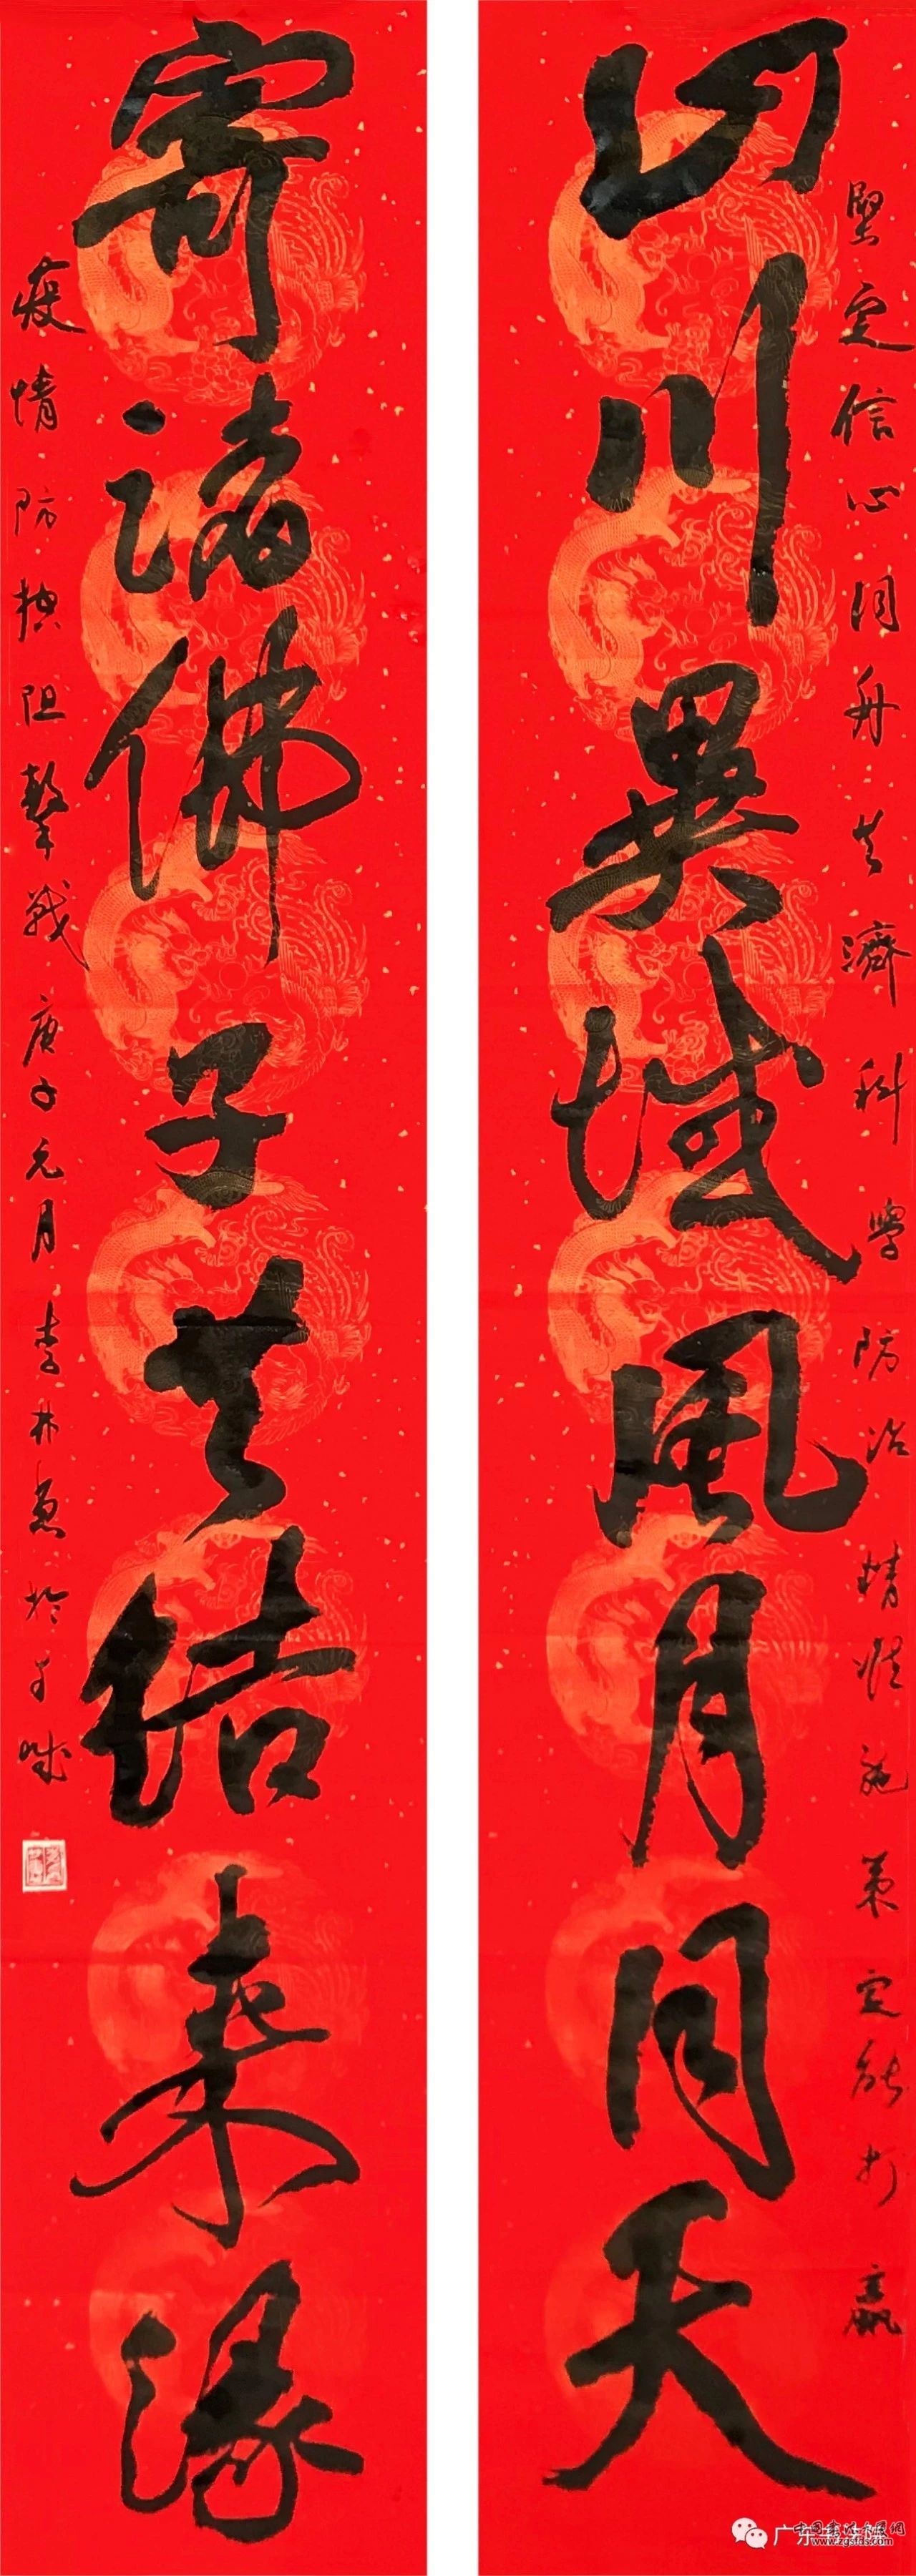 堅定信心同舟共濟科學防治精准施策定能打贏
山川異域風月同天
寄諸佛子共結來緣
疫情防控阻擊戰庚子元月李林於城
广东